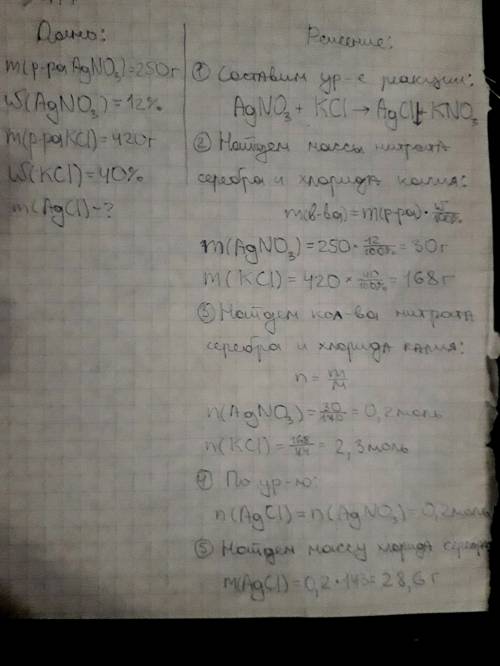 Дано:
m(р-ра AgNO₃)=250г
W(AgNO₃)=12%
m(р-ра KCl)=420г
W(KCl)=40%
m(AgCl)-?
Решение:
① Составим ур-е реакции:
AgNO₃ + KCl → AgCl↓ + KNO₃
② Найдем массы нитрата
серебра и хлорида калия:
m(в-ва)=m(р-ра)·W/100%
m(AgNO₃)=250·12/100%=30г
m(KCl)=420·40/100%=168г
③ Найдем кол-ва нитрата
серебра и хлорида калия:
n=m/M
n(AgNO₃)=30/170=0,2моль
n(KCl)=168/74=2,3моль
④ По ур-ю:
n(AgCl)=n(AgNO₃)=0,2моль
⑤ Найдем массу хлорида серебра
m(AgCl)=0,2·143=28,6г